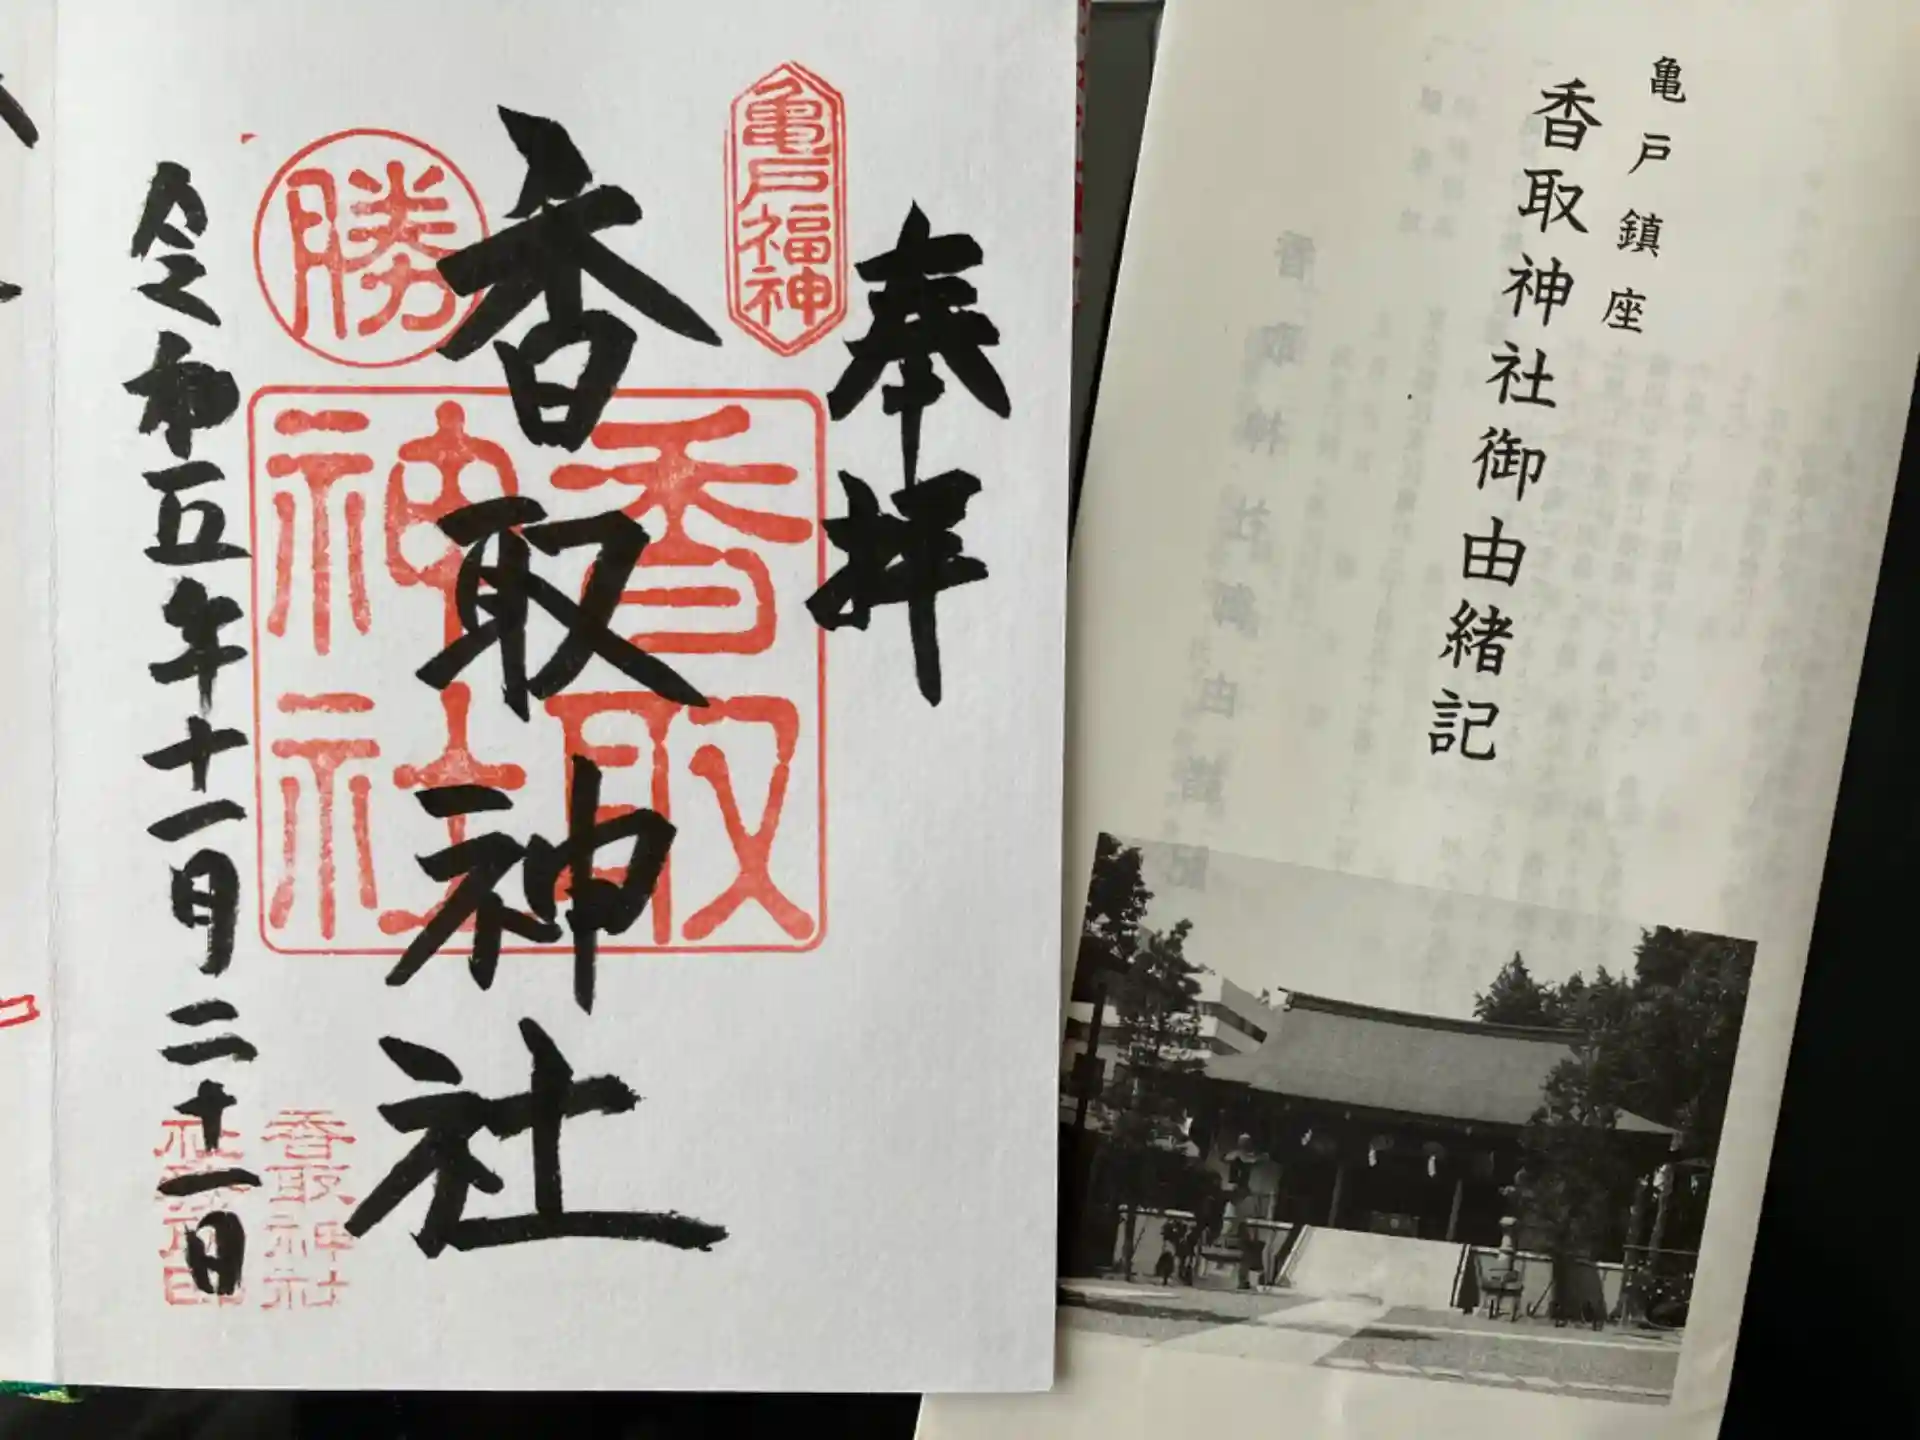 奉拝
亀戸福神
香取神社
勝
香取
神社
令和五年十一月二十一日
香取神社
亀戸鎮座
香取神社御由緒記